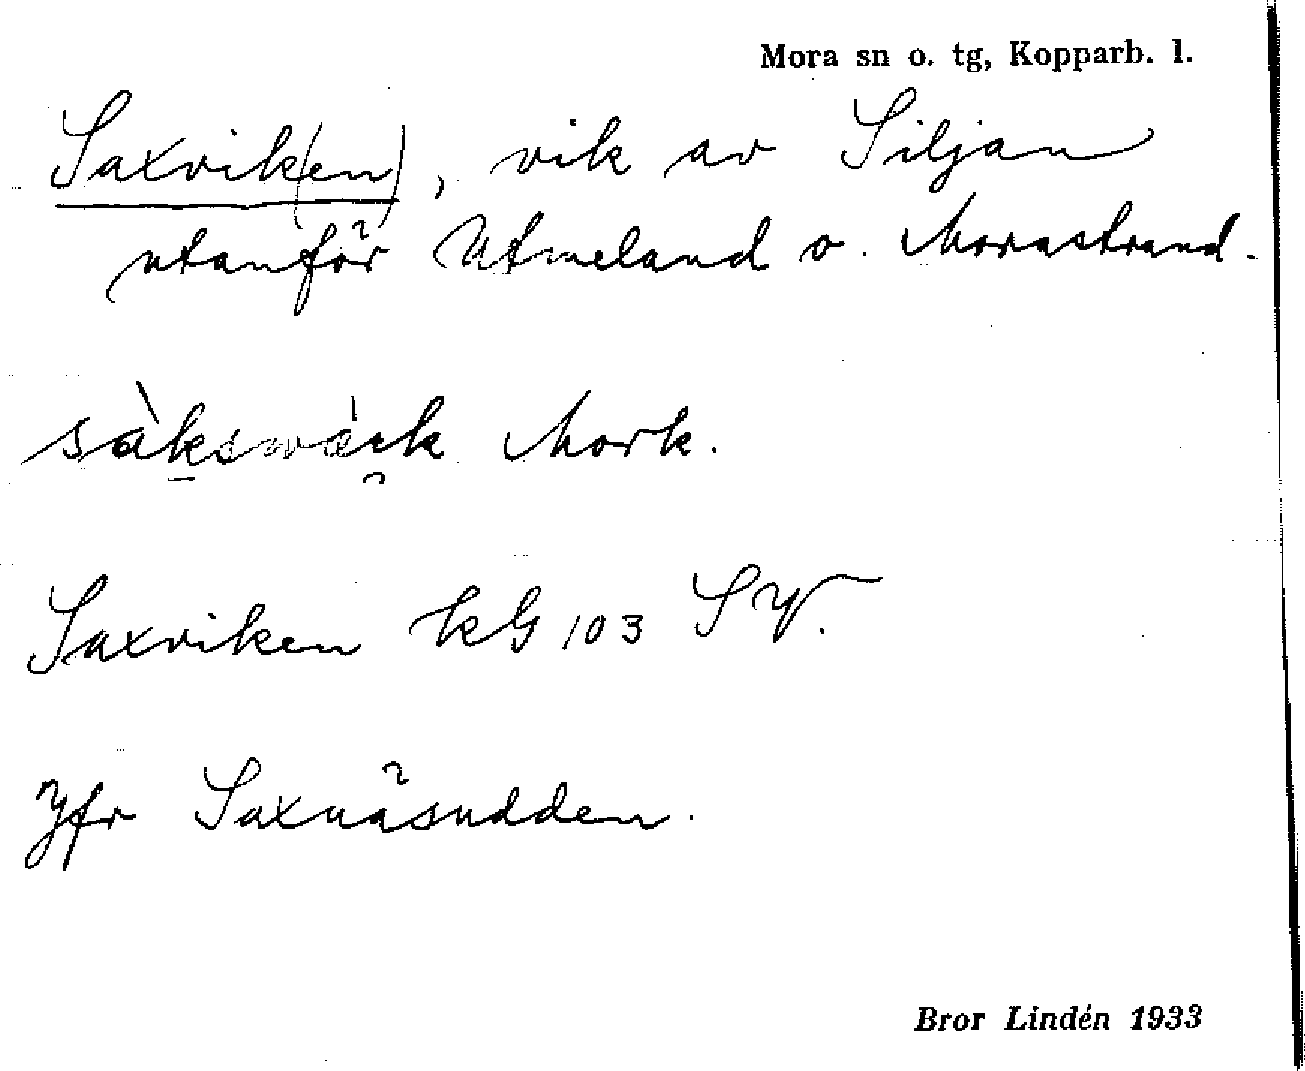 Mora sn o. tg, Kopparb. l.
Saxvik(en), vik av Siljan
utanför Utmeland o. Morastrand.
Mork.
Saxviken kG 103 SV.
Jfr Saxnäsudden.
Bror Lindén 1933